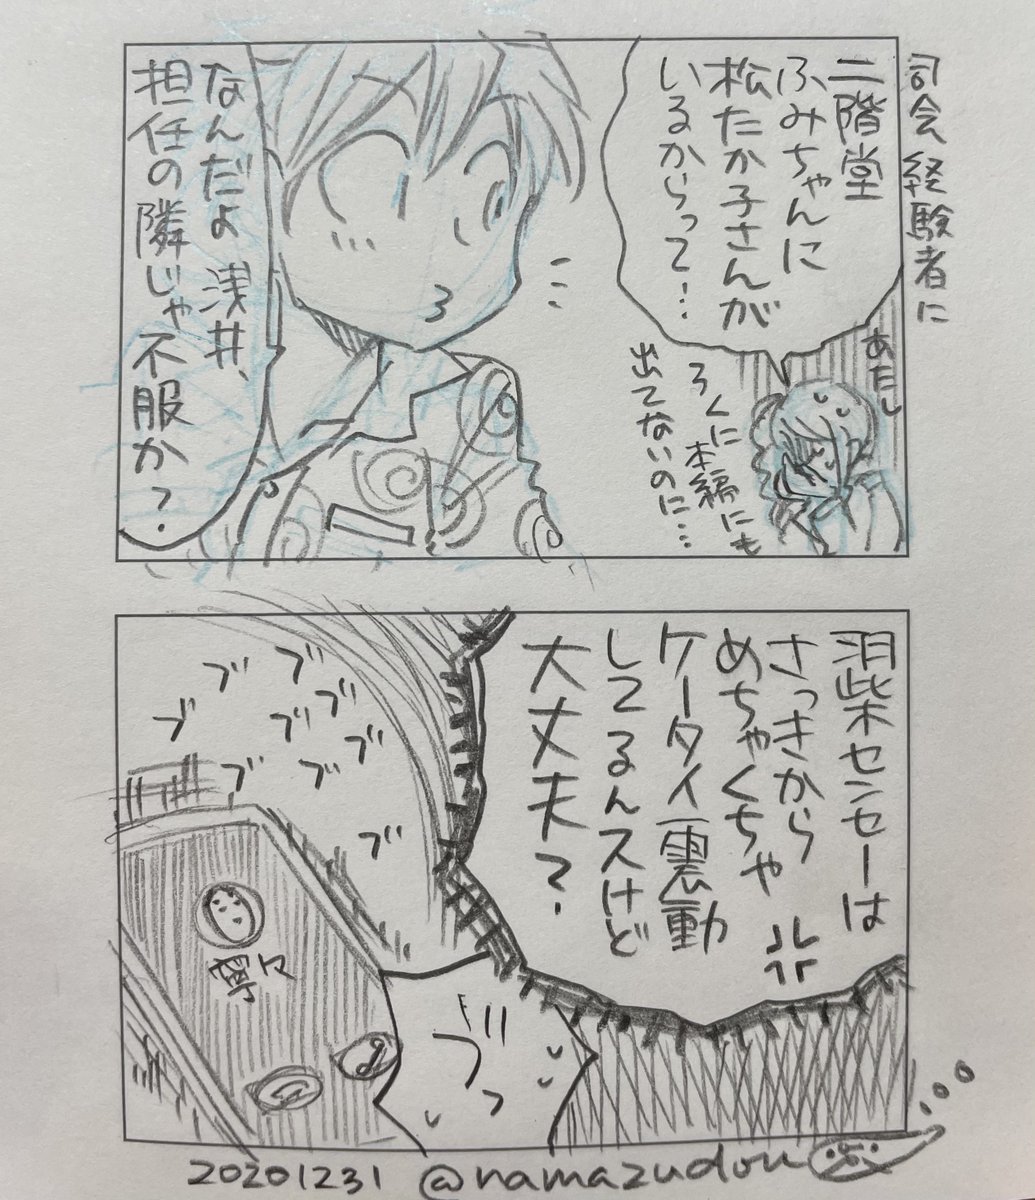 司会経験者に
二階堂
ふみちゃんに
松たか子さんが
いるからって…
あたし
ろくに
本編にも
出てないのに…
なんだよ浅井、
担任の隣じゃ不服か?
羽柴センセーは
さっきから
めちゃくちゃ
ケータイ震動
してるんスけど
大丈夫?
ブ
ブ
ブ
ブ
ブ
ブ
ブ
ブ
寧々
ブッ
20201231 @namazudou